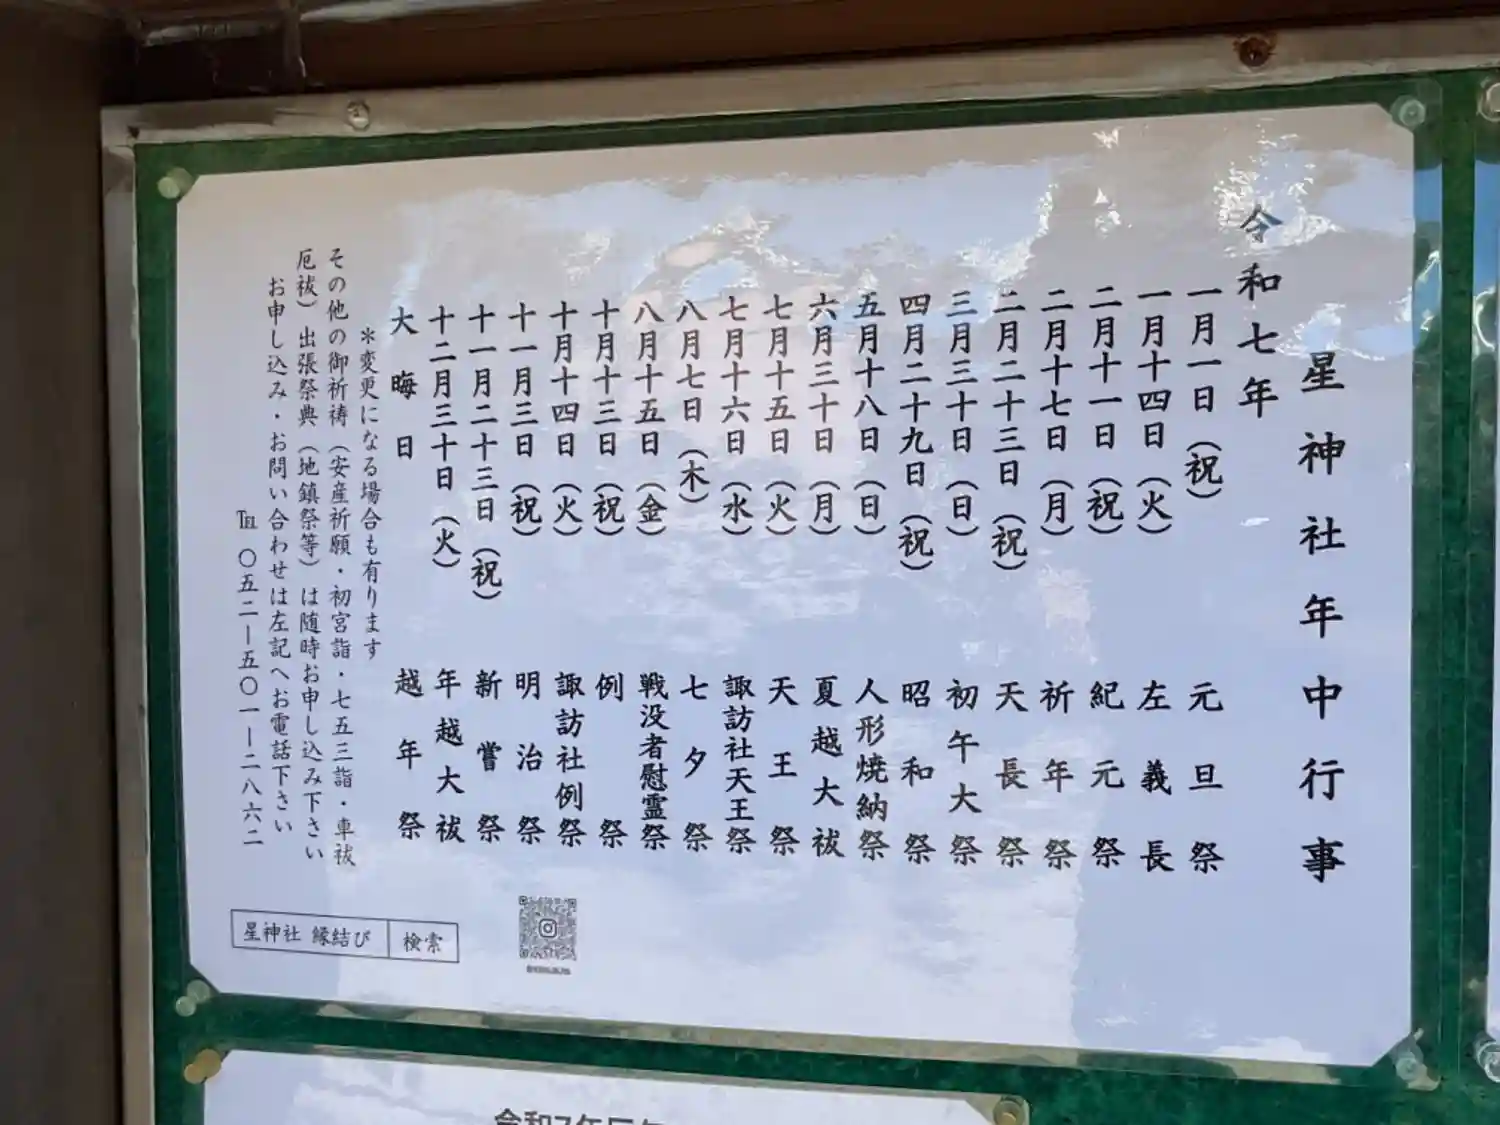 星神社年中行事
令和七年
一月一日（祝） 元旦祭
一月十四日（火） 左義長
二月十一日（祝） 紀元祭
二月十七日（月） 祈年祭
二月二十三日（祝） 天長祭
三月三十日（日） 初午大祭
四月二十九日（祝） 昭和祭
五月十八日（日） 人形焼納祭
六月三十日（月） 夏越大祓
七月十五日（火） 天王祭
七月十六日（水） 諏訪社天王祭
八月七日（木） 七夕祭
八月十五日（金） 戦没者慰霊祭
十月十三日（祝） 例祭
十月十四日（火） 諏訪社例祭
十一月三日（祝） 明治祭
十一月二十三日（祝） 新嘗祭
十二月三十日（火） 年越大祓
大晦日 越年祭
＊変更になる場合も有ります
その他の御祈祷（安産祈願・初宮詣・七五三詣・車祓
厄祓）出張祭典（地鎮祭等）は随時お申し込み下さい
お申し込み・お問い合わせは左記へお電話下さい
℡ 〇五二ー五〇一ー二八六二
星神社 縁結び 検索